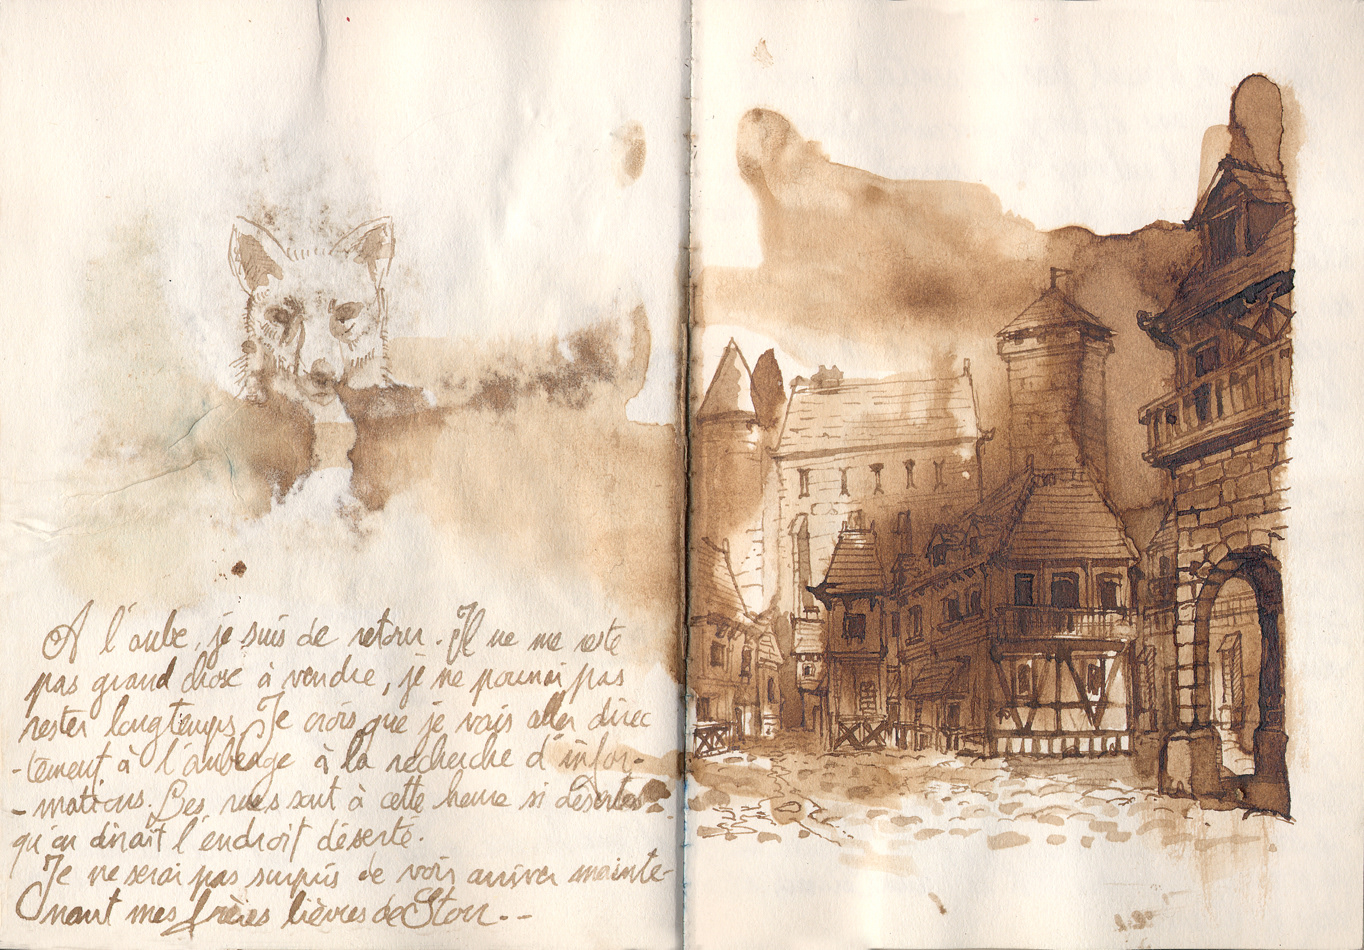 A l'aube, je suis de retour. Il ne me reste
pas grand chose à vendre, je ne pourrai pas
rester longtemps. Je crois que je vais aller direc
-tement à l'auberge à la recherche d'infor-
-mations. Les rues sont à cette heure si désertes
qu'on dirait l'endroit déserté.
Je ne serai pas surpris de voir arriver mainte-
nant mes frères lièvres de